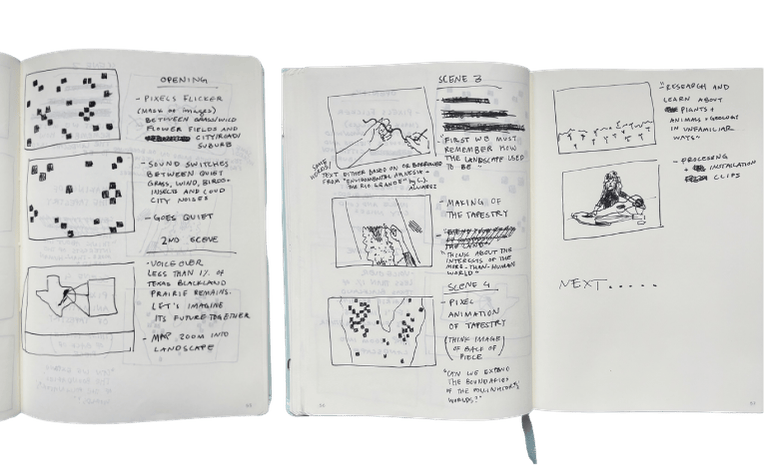 OPENING
- PIXELS FLICKER
(MASK OF IMAGES)
BETWEEN GRASS/WILD
FLOWER FIELDS AND
CITY/ROADS/
SUBURB
- SOUND SWITCHES
BETWEEN QUIET
GRASS, WIND, BIRDS+
INSECTS AND LOUD
CITY NOISES
- GOES QUIET
2ND SCENE
- VOICE OVER
LESS THAN 1% OF
TEXAS BLACKLAND
PRAIRIE REMAINS.
LET'S IMAGINE
ITS FUTURE TOGETHER
- MAP ZOOM INTO
LANDSCAPE
SCENE 3
- FIRST WE MUST
REMEMBER HOW
THE LANDSCAPE USED
TO BE"
TEXT EITHER BASED ON OR BORROWED
FROM "ENVIRONMENTAL AMNESIA
RIO GRANDE" by C.J.
ALVAREZ
- MAKING OF
THE TAPESTRY
"THINK ABOUT THE
INTERESTS OF THE
MORE-THAN-HUMAN
WORLD"
SCENE 4
- PIXEL
ANIMATION
OF TAPESTRY
(THINK IMAGE)
OF BACK OF
PIECE
"CAN WE EXPAND
THE BOUNDARIES
OF THE POLLINATOR'S
WORLDS?"
"RESEARCH AND
LEARN ABOUT
PLANTS+
ANIMALS+GEOLOGY
IN UNFAMILIAR
WAYS"
- PROCESSING
+ INSTALLATION
CLIPS
NEXT.....